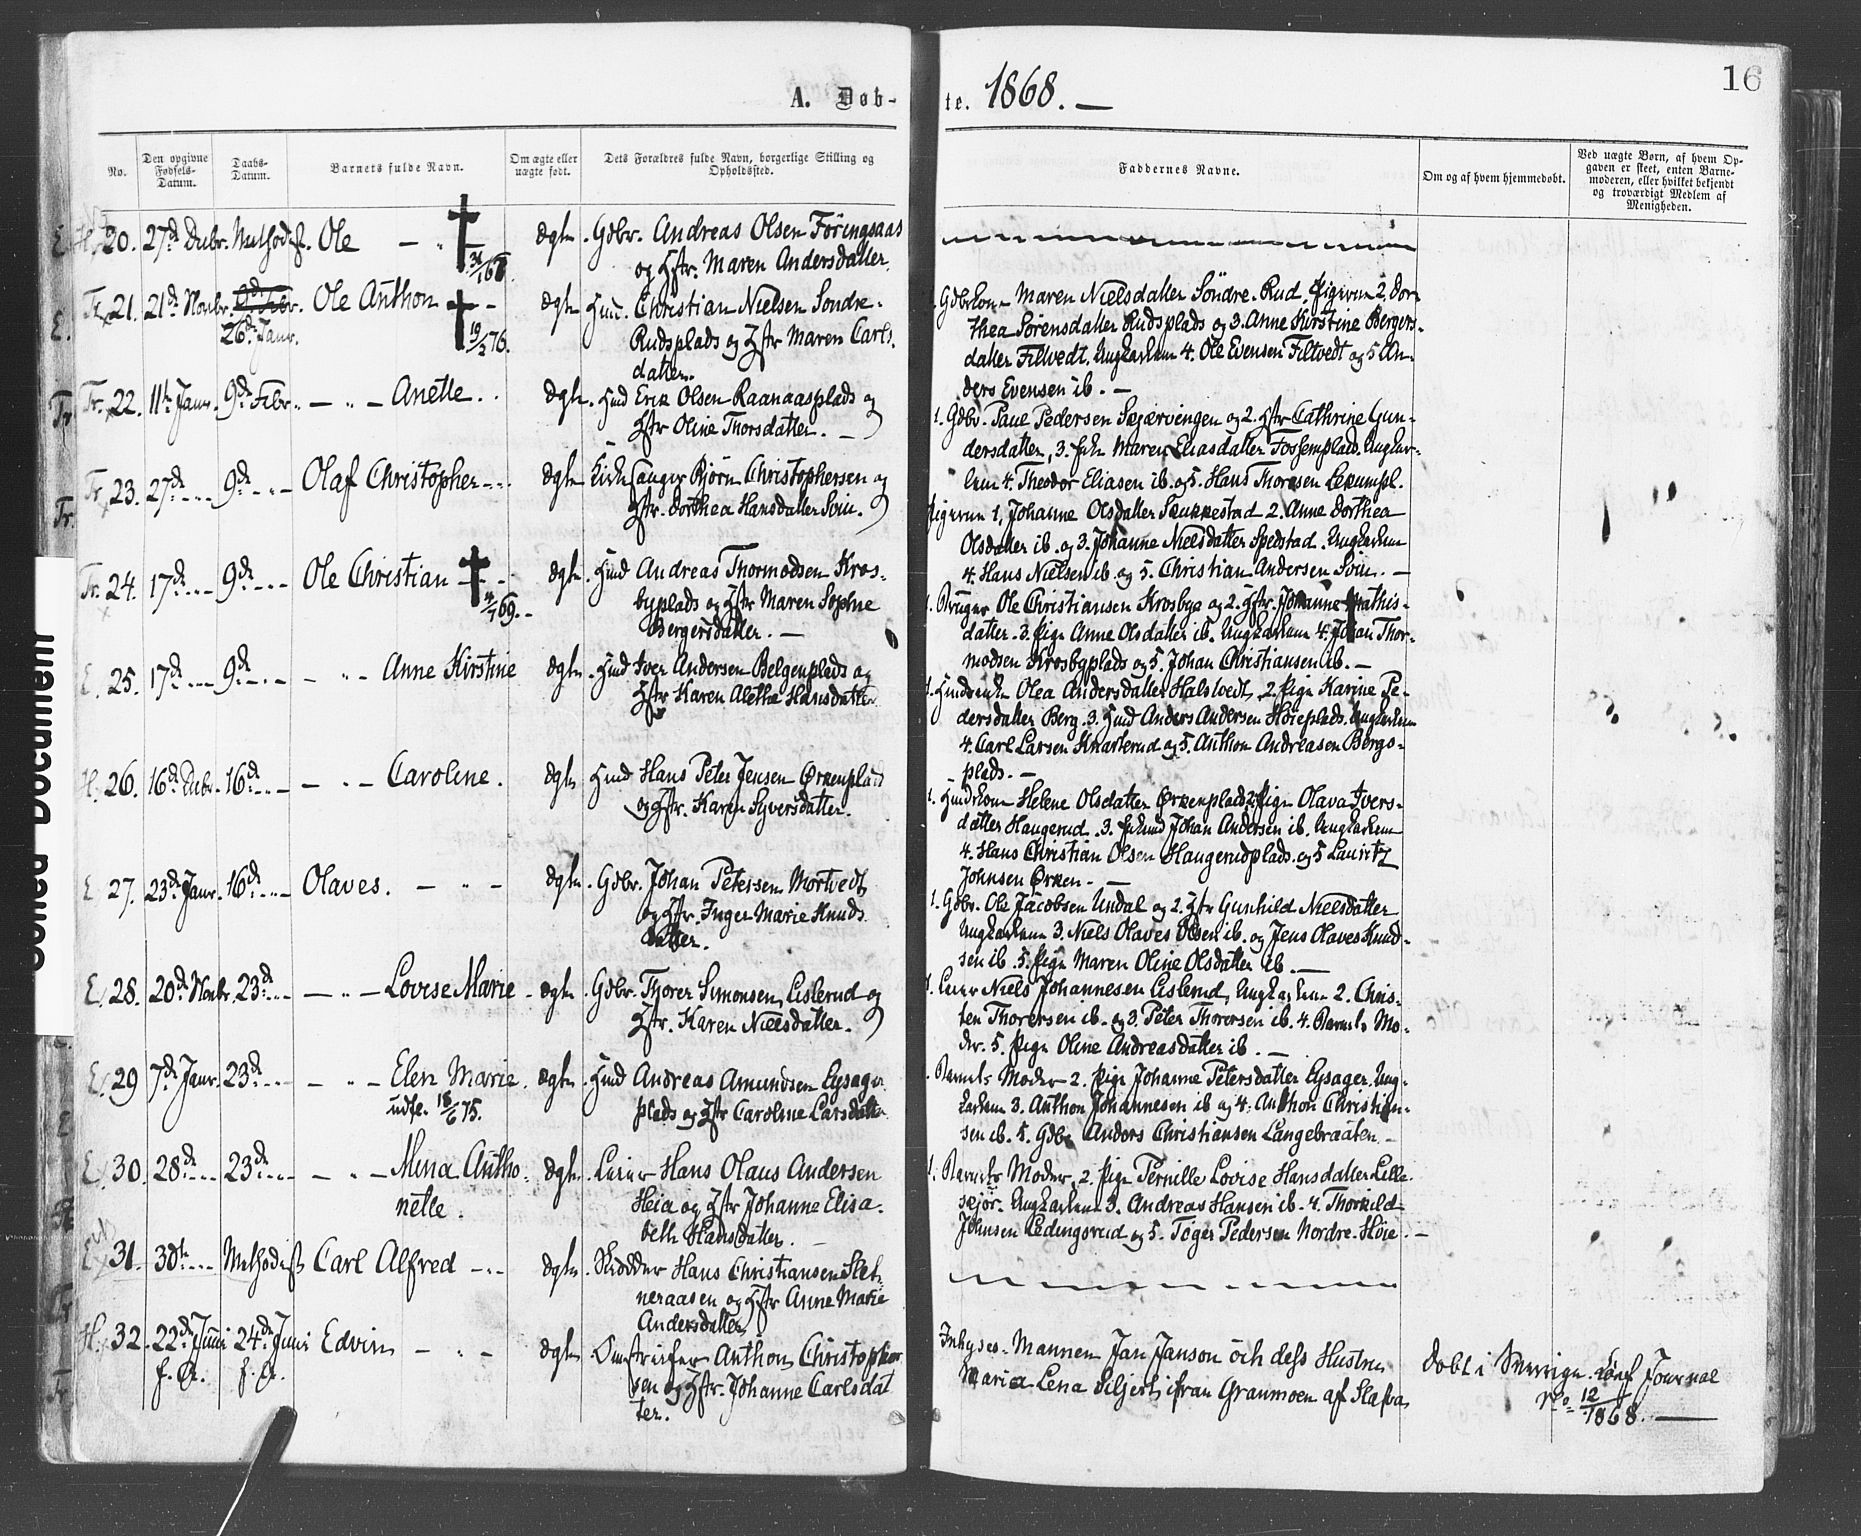 A. Døb-
te. 1868.
16
No.
Den opgivne Fødsels-Datum.
Daabs-Datum.
Barnets fulde Navn.
Om ægte eller uægte født.
Dets Forældres fulde Navn, borgerlige Stilling og Opholdssted.
Faddernes Navne.
Om og af hvem hjemmedøbt.
Ved uægte Børn, af hvem Opgaven er skeet, enten Barnemoderen, eller hvilket bekjendt og troværdigt Medlem af Menigheden.
20. 27de Decbr. Methodist. Ole ægte Gdbr. Andreas Olsen Føringsaas
og Hstr. Maren Andersdatter.
21. 21de Novbr. 26de Janr. Ole Anthon 19/2 76. ægte Hmd. Christian Nielsen Søndre-
Rudsplads og Hstr Maren Carls-
datter.
Gdbrkone Maren Nielsdatter Søndre-Rud, Pigerne 2, Dor-
thea Sørensdatter Rudsplads og 3. Anne Kirstine Bergers-
datter Filtvedt. Ungkarlene 4. Ole Evensen Filtvedt og 5 An-
ders Evensen ib. —
22. 11te Janr. 9de Febr. Anette. ægte Hmd Erik Olsen Raanaasplads og
Hstr Oline Thorsdatter. —
1. Gdbr. Paul Pedersen Skjærvingen og 2. Hstr Cathrine Gun-
dersdatter, 3. Enke Maren Eliasdatter Fossemplads. Ungkar-
lene 4. Theodor Eliasen ib. og 5. Hans Thorsen Lekumpl.
23. 27de 9de Olaf Christopher ægte Kirkesanger Bjørn Christophersen og
Hstr. Dorthea Hansdatter Svin.
Pigerne 1, Johanne Olsdatter Skukkestad 2. Anne Dorthea
Olsdatter ib. og 3. Johanne Nielsdatter Spedstad. Ungkarlene
4. Hans Nielsen ib. og 5. Christian Andersen Svin. —
24. 17de 9de Ole Christian ægte Hmd Andreas Thormodsen Kros-
byplads og Hstr Maren Sophie
Bergersdatter. —
1. Bruger Ole Christiansen Krosbye og 2. Hstr. Johanne Mathis-
datter. 3. Pige Anne Olsdatter ib. Ungkarlene 4. Johan Thor-
modsen Krosbyplads og 5. Johan Christiansen ib. —
25. 17de 9de Anne Kirstine ægte Hmd Iver Andersen Belgenplads og
Hstr Karen Alethe Hansdatter
1. Hmdsenke Olea Andersdatter Halstvedt, 2. Pige Karine Pe-
dersdatter Berg. 3. Hmd Anders Andersen Høieplads. Ungkarlene
4. Carl Larsen Knarterud og 5. Anthon Andreasen Bergs-
plads. —
26. 16de Decbr. 16de Caroline. ægte Hmd Hans Peter Jensen Ørkenplads
og Hstr. Karen Syversdatter.
1. Hmdskone Helene Olsdatter Ørkenplads 2. Pige Olava Ivers-
datter Haugerud. 3. Enkmd Johan Andersen ib. Ungkarlene
4. Hans Christian Olsen Haugerudplads. og 5 Lauritz
Johnsen Ørken. —
27. 23de Janr. 16de Olaves. ægte Gdbr. Johan Petersen Mortvedt
og Hstr. Inger Marie Knuds-
datter.
1. Gdbr. Ole Jacobsen Undal og 2. Hstr Gunhild Nielsdatter
Ungkarlene 3. Niels Olaves Olsen ib. og Jens Olaves Knud-
sen ib. 5. Pige Maren Oline Olsdatter ib. —
28. 20de Novbr. 23de Lovise Marie ægte Gdbr. Thorer Simonsen Lislerud og
Hstr. Karen Nielsdatter.
1. Leier Niels Johannesen Lislerud, Ungkarlene 2. Chris-
ten Thorersen ib. og 3. Peter Thorersen ib. 4. Barnets Mo-
der. 5. Pige Oline Andreasdatter ib. —
29 7de Janr. 23de Elen Marie. ægte Hmd Andreas Amundsen Eysager-
udfl. 18/6 75. plads og Hstr Caroline Larsdatter
1. Barnets Moder 2. Pige Johanne Petersdatter Eysager. Ung-
karlene 3. Anthon Johannesen ib og 4. Anthon Christian-
sen ib. 5. Gdbr Anders Christiansen Langebraaten. —
30. 28de 23de Mina Antho-
nette. ægte Leier Hans Olaus Andersen
Heia og Hstr Johanne Elisa-
beth Hansdatter. —
1. Barnets Moder, 2. Pige Pernille Lovise Hansdatter Lille-
sejør. Ungkarlene 3. Andreas Hansen ib. 4. Thorkild
Johnsen Ledengsrud og 5. Tøger Pedersen Nordre-Høie. —
31. 30te Methodist Carl Alfred ægte Skrædder Hans Christiansen Slet-
neraasen og Hstr Anne Marie
Andersdatter
32. 22de Juni 24de Juni Edvin ægte Omstreifer Anthon Christopher-
f. A. f. A. sen og Hstr. Johanne Carlsdat-
ter.
Inhyses-Mannen Jan Janson och dess Hustru
Maria Lena Siljert ifran Granmoen af
Døbt i Sverige. Journal
No 12/1868. —